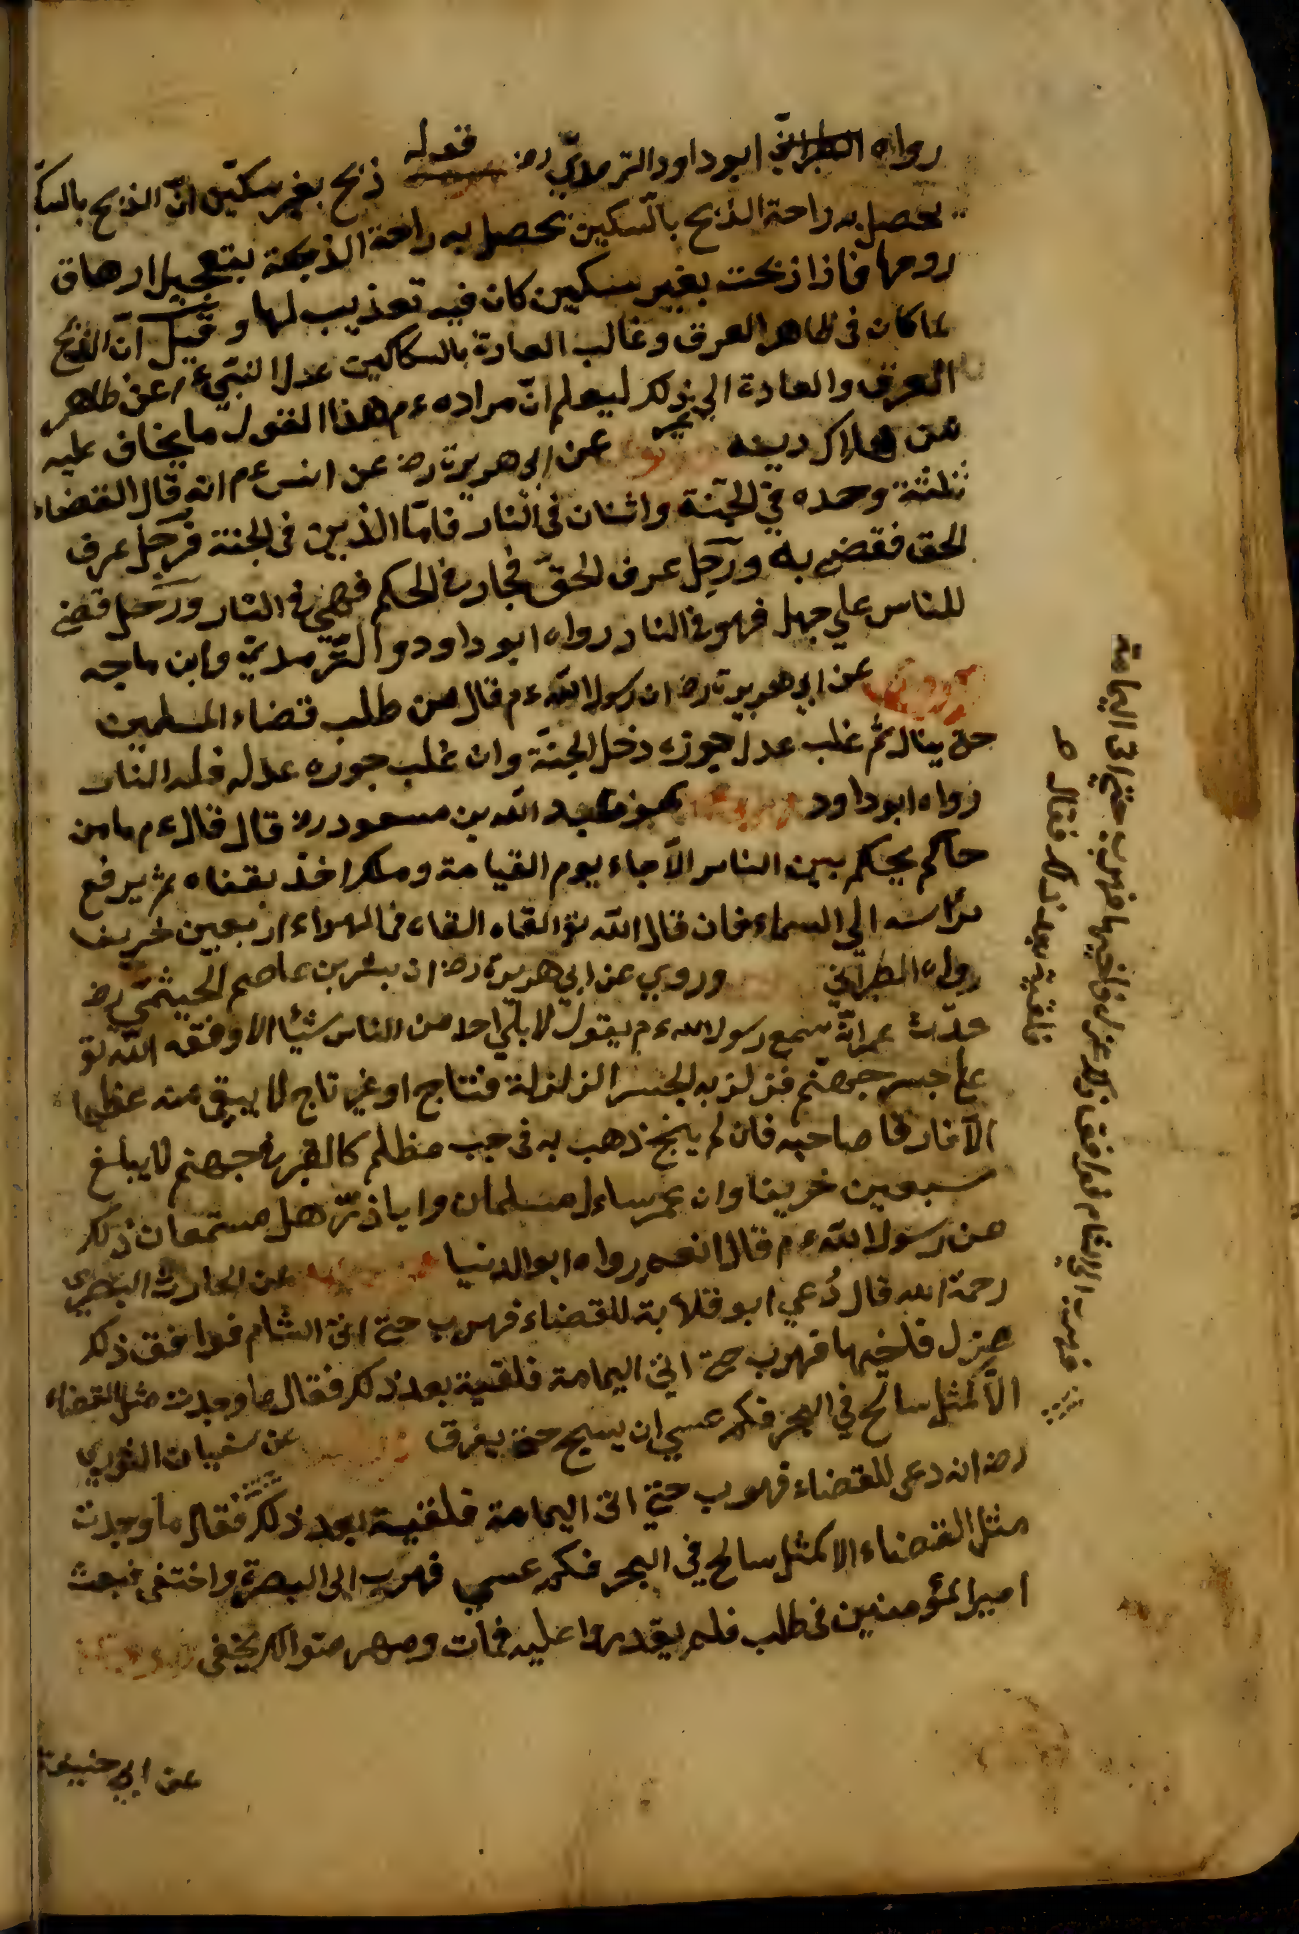 رواه الطبراني ابو داود والترمذي رض قوله ذبح بغير سكين ان الذبح بالسكّ
يحصل به راحة الذبح بالسكين يحصل به راحة الذبيحة بتعجيل ارهاق
روحها فاذا ذبحت بغير سكين كان فيه تعذيب لها وقيل ان الذبح
لما كان فى ظاهر العرف وغالب العادة بالسكاكين عدل النبي ءم عن ظاهر
العرف والعادة الى غير ذلك ليعلم انّ مراده ءم هذا القول ما يخاف عليه
من هلاك دينه عن ابى هريرة رض عن انس ءم انه قال القضاء
ثلثة وحده في الجنة واثنان فى النار فامّا الذين فى الجنة فرجل عرف
الحق فقضى به ورجل عرف الحقّ فجار في الحكم فهى في النار ورجل قضى
للناس علي جهل فهو في النار رواه ابو داود والترمذي وابن ماجه
وروى عن ابي هريرة رض ان رسول الله ءم قال من طلب قضاء المسلمين
حتى ينال ثم غلب عدل جوزه دخل الجنّة وان غلب جوره عدله فله النار
رواه ابو داود عبد الله بن مسعود رض قال قال ءم ما من
حاكم يحكم بين الناس الّا جاء يوم القيامة وملك اخذ بقفاه ثم يرفع
رأسه الي السماء فان قال الله تع القاه القاه في المهواء اربعين خريفا
رواه الطبراني وروي عن ابي هريرة رض ان بشر بن عاصم الجيشميّ رض
حدّث عمر انّه سمع رسول الله ءم يقول لا يلي احد من الناس شيئا الا وقفه الله تع
على جسر جهنم فزلزل به الجسر الزلزلة فناج او غير ناج لا يبقى منه عظما
الّا فارقا صاحبه فان لم ينج ذهب به فى جب مظلم كالقبر في جهنم لا يبلغ
سبعين خريفا وان عمر سال مسلمان وابا ذرّ هل سمعتما ن ذلك
من رسول الله ءم قال نعم رواه ابو الدنيا عن الحارث البصرى
رحمة الله قال دُعي ابو قلابة للقضاء فهرب حتى اتى الشام فوافق ذلك
عزل قاضيها فهرب حتى اتى اليمامة فلقيته بعد ذلك فقال ما وجدت مثل القضاء
الّا كمثل سابح في البحر فكم عسي ان يسبح حتى يغرق عن سفيان الثوري
رض انه دعى للقضاء فهرب حتي اتى اليمامة فلقيته بعد ذلك فقال ما وجدت
مثل القضاء الا كمثل سابح في البحر فكم عسي فهرب الى البصرة واختفى فبعث
امير المؤمنين فى طلب فلم يقدروا عليه فمات وهو متوالك يخفى
عن ابي حنيفة
فهرب حتي اتى اليمامة
فلقيته بعد ذلك فقال